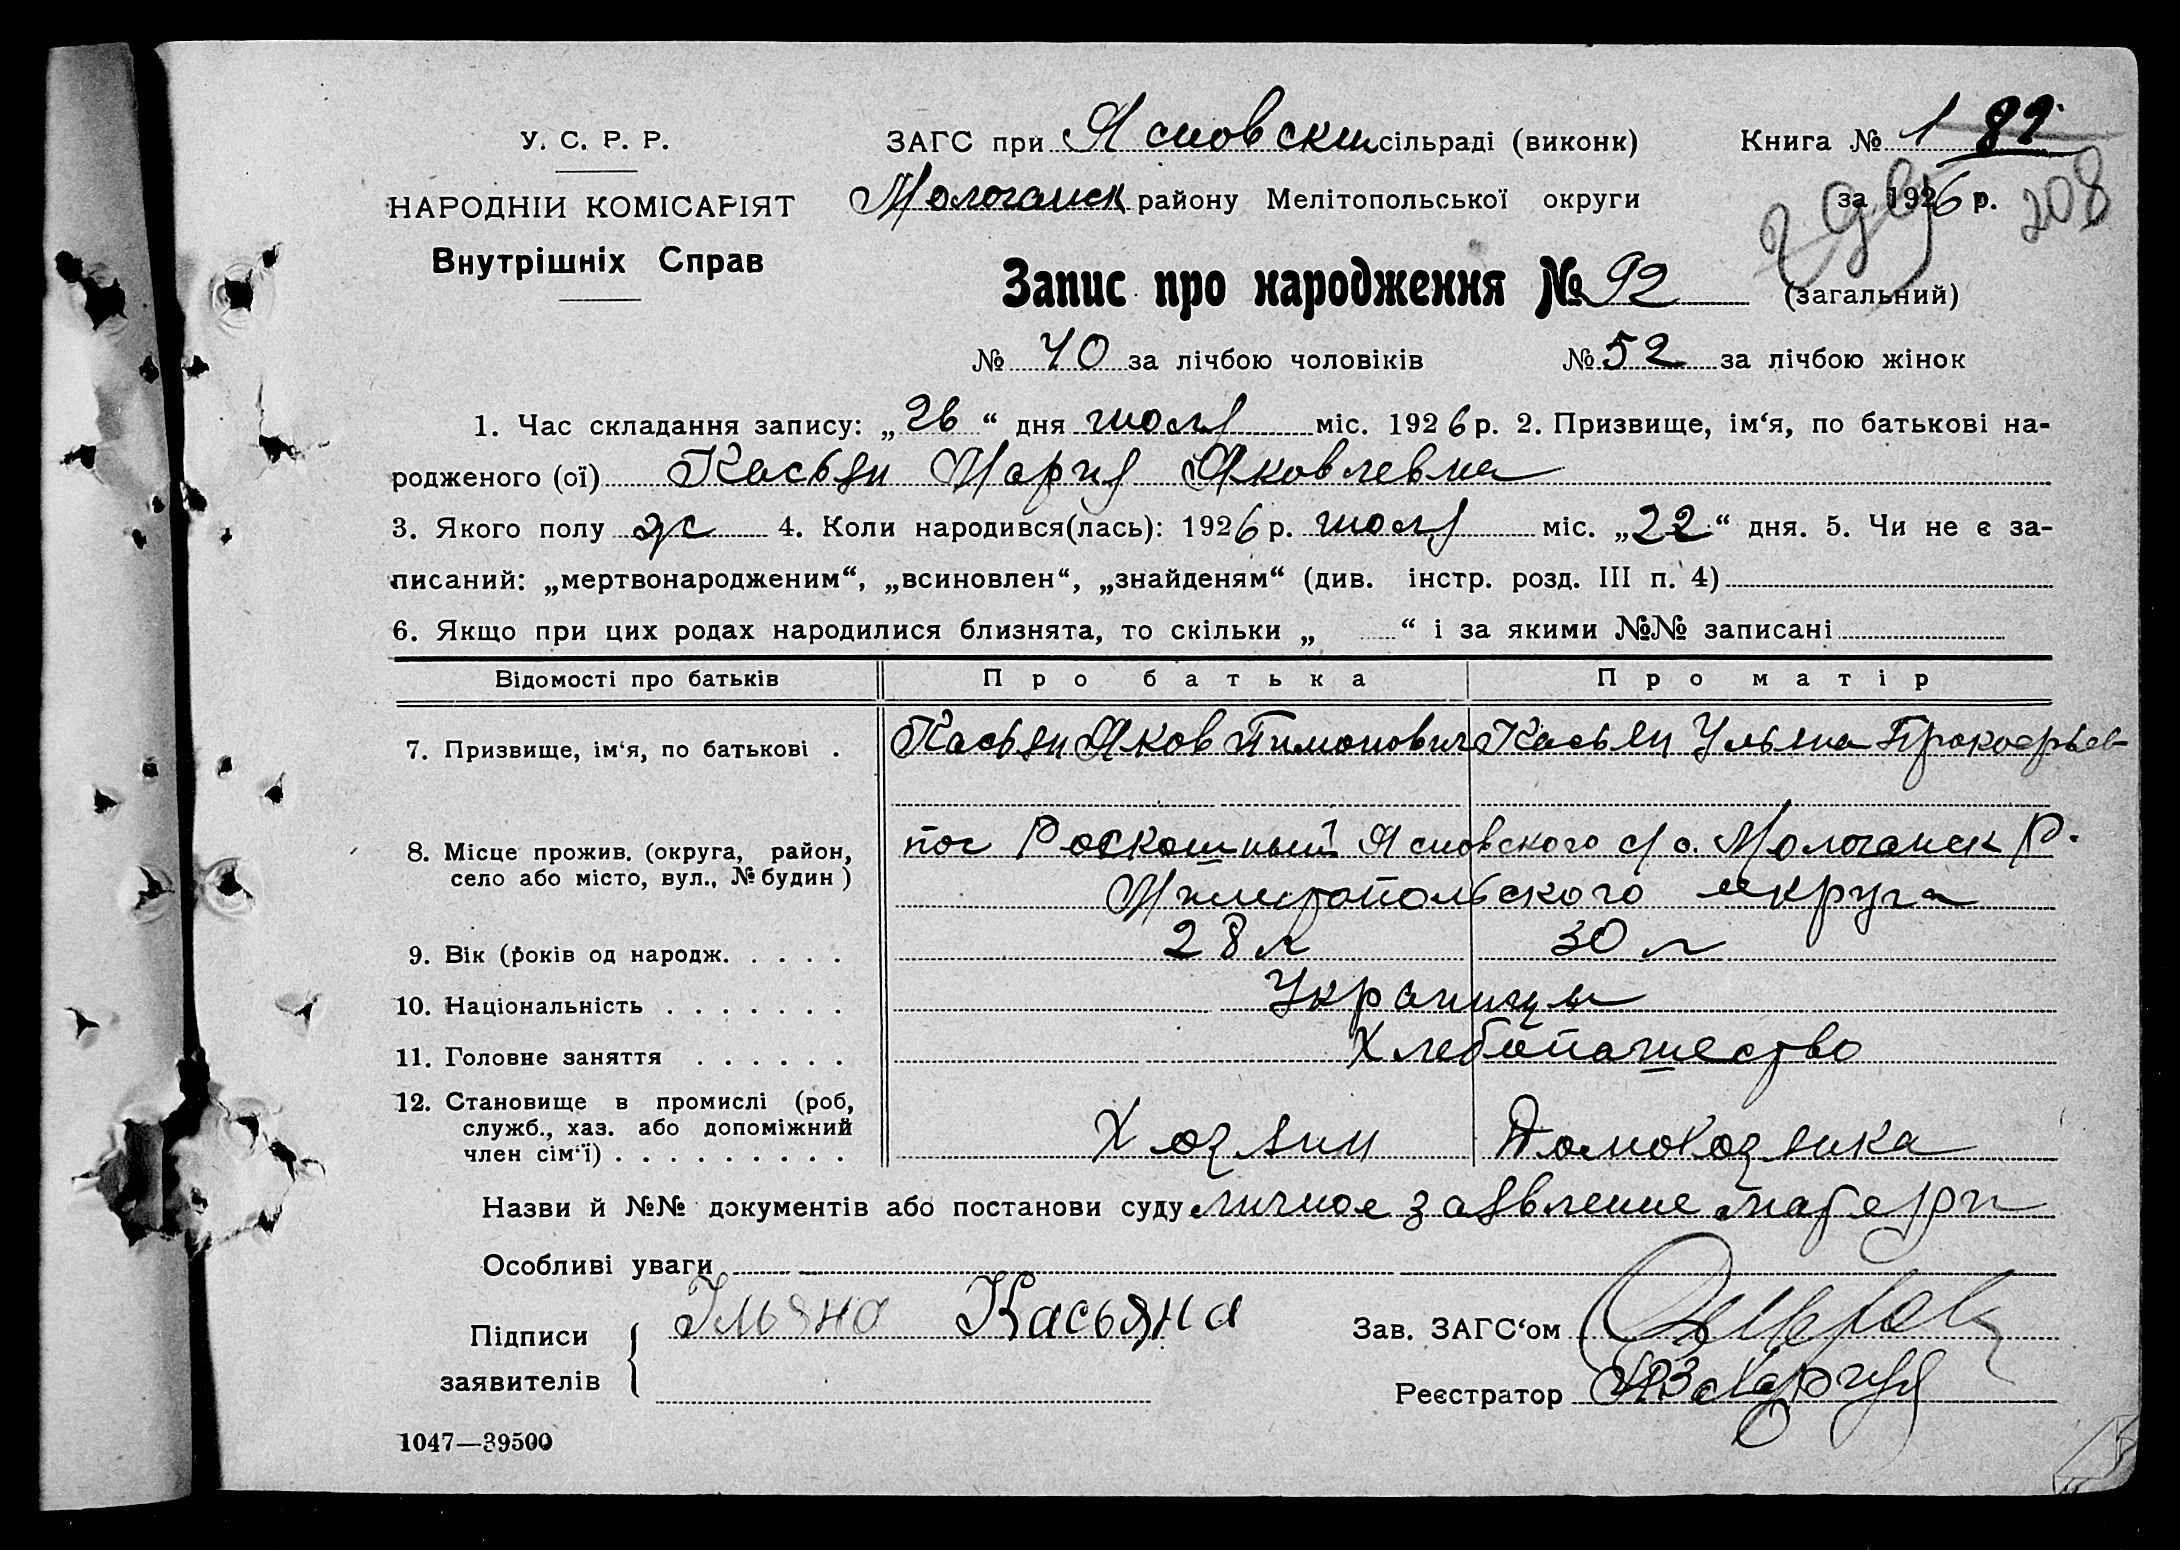 У. С. Р. Р.
НАРОДНІЙ КОМІСАРІЯТ
Внутрішніх Справ
ЗАГС при Ясновским сільраді (виконк)
Молочанск району Мелітопольської округи
Книга № 1 82
за 1926 р. 208
Запис про народження № 92 (загальний)
№ 40 за лічбою чоловіків № 52 за лічбою жінок
1. Час складання запису: „26“ дня июля міс. 1926 р. 2. Призвище, ім‘я, по батькові на-
родженого (ої) Касьян Мария Яковлевна
3. Якого полу ж 4. Коли народився(лась): 1926 р. июля міс. „22“ дня. 5. Чи не є за-
писаний: „мертвонародженим“, „всиновлен“, „знайденям“ (див. інстр. розд. III п. 4)
6. Якщо при цих родах народилися близнята, то скільки „ “ і за якими №№ записані
Відомості про батьків Про батька Про матір
7. Призвище, ім‘я, по батькові . Касьян Яков Тимонович Касьян Ульяна Прокофьев
8. Місце прожив. (округа, район, село або місто, вул., № будин) пос Роскошный Ясновского с/с. Молочанск Р.
Мелитопольского округа
9. Вік (років од народж. . . . . 28 л 30 л
10. Національність . . . . . . . Украинцы
11. Головне заняття . . . . . . Хлебопашество
12. Становище в промислі (роб,
служб., хаз. або допоміжний
член сім‘ї) . . . . . . . . . Хозяин Домохозяйка
Назви й №№ документів або постанови суду личное заявление матери
Особливі уваги
Підписи заявителів Ульяна Касьяна
Зав. ЗАГС‘ом
Реєстратор
1047—39500